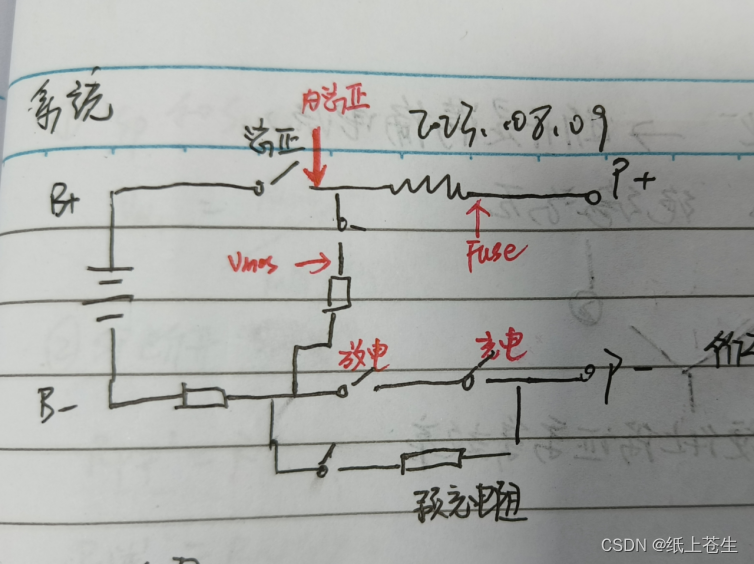 系统
内总正
223.08.09
总正
B+
P+
Fuse
Vmos
放电
充电
B-
P-
预充电阻
CSDN @纸上苍生